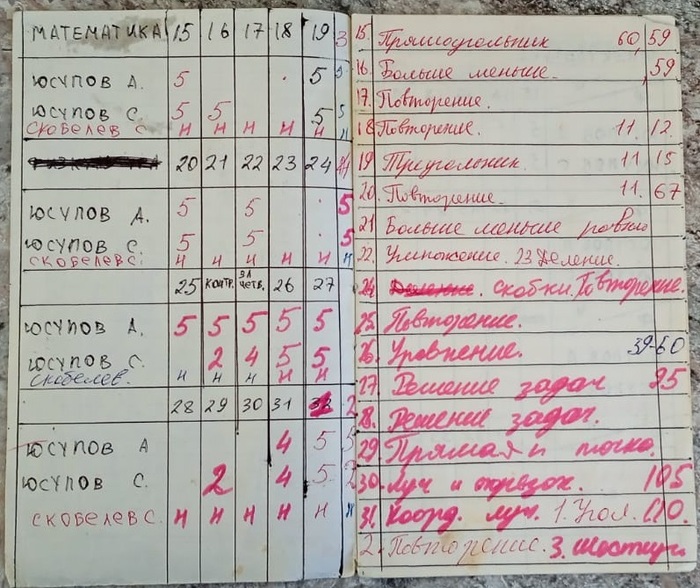 МАТЕМАТИКА 15 16 17 18 19 3
ЮСУПОВ А. 5 5 5
ЮСУПОВ С. 5 5 5 5
СКОБЕЛЕВ С. н н н н н н
20 21 22 23 24
ЮСУПОВ А. 5 5 5
ЮСУПОВ С. 5 5 5
СКОБЕЛЕВ С. н н н н н н
25 КОНТР. ЗА ЧЕТВ. 26 27
ЮСУПОВ А. 5 5 5 5 5
ЮСУПОВ С. 2 4 5 5
СКОБЕЛЕВ. н н н н н
28 29 30 31 2
ЮСУПОВ А 4 5 5
ЮСУПОВ С. 2 4 5 2
СКОБЕЛЕВ С. н н н н н н
15. Прямоугольник 60, 59
16. Больше меньше. , 59
17. Повторение.
18 Повторение. 11. 12.
19 Треугольник. 11 15
20. Повторение. 11. 67
21 Больше меньше ровно
22. Умножение. 23 Деление.
24 скобки. Повторение.
25. Повторение.
26. Уровнение. 39-60
27. Решение задач 95
28. Решение задач.
29. Прямая и точка.
30. Луч и отрезок. 105
31. Коорд. луч. 1. Угол. 110.
2. Повторение. 3. Шестиуг